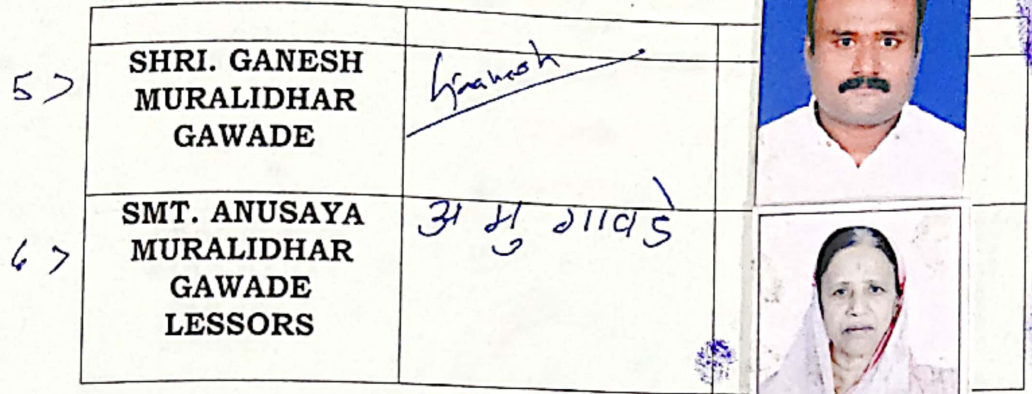 5>
SHRI. GANESH
MURALIDHAR
GAWADE
Ganesh
6>
SMT. ANUSAYA
MURALIDHAR
GAWADE
LESSORS
अ मु गावडे